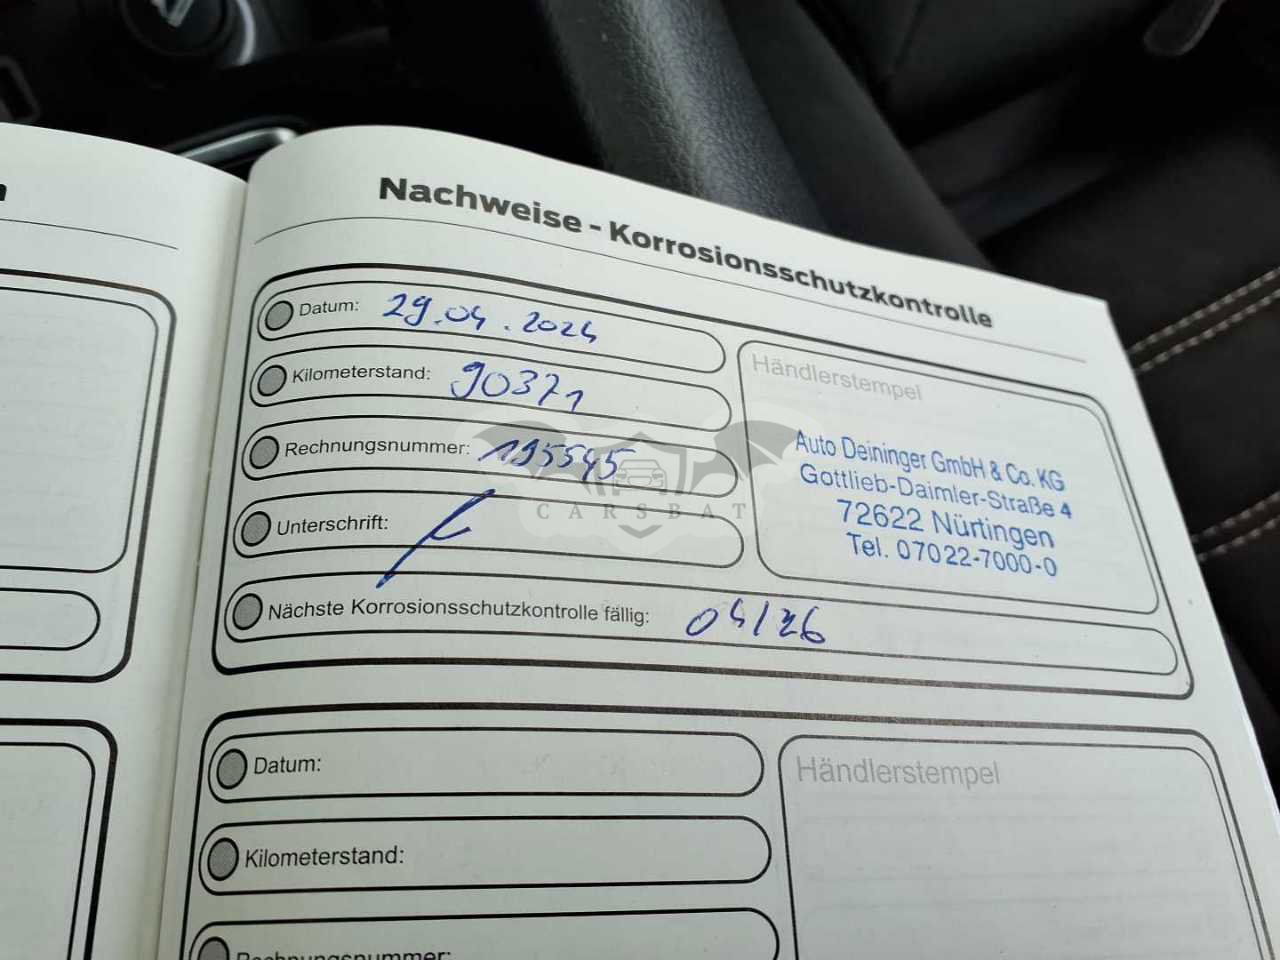 n
Nachweise - Korrosionsschutzkontrolle
Datum: 29.04.2024
Kilometerstand: 90371
Rechnungsnummer: 195545
Unterschrift:
Händlerstempel
Auto Deininger GmbH & Co. KG
Gottlieb-Daimler-Straße 4
72622 Nürtingen
Tel. 07022-7000-0
CARSBAT
Nächste Korrosionsschutzkontrolle fällig: 04/26
Datum:
Händlerstempel
Kilometerstand:
Rechnungsnummer: